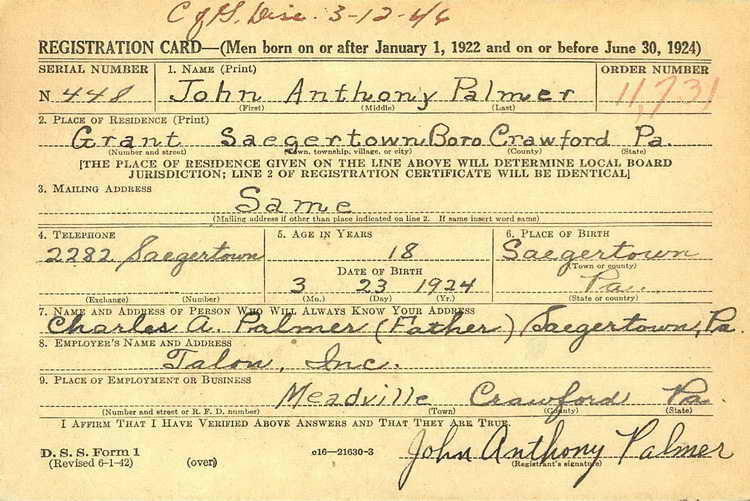 C of G. Disc. 3-12-46
REGISTRATION CARD—(Men born on or after January 1, 1922 and on or before June 30, 1924)
SERIAL NUMBER 1. NAME (Print) ORDER NUMBER
N 448 John Anthony Palmer 11,731
(First) (Middle) (Last)
2. PLACE OF RESIDENCE (Print)
Grant Saegertown Boro Crawford Pa.
(Number and street) (Town, township, village, or city) (County) (State)
[THE PLACE OF RESIDENCE GIVEN ON THE LINE ABOVE WILL DETERMINE LOCAL BOARD
JURISDICTION; LINE 2 OF REGISTRATION CERTIFICATE WILL BE IDENTICAL]
3. MAILING ADDRESS
Same
(Mailing address if other than place indicated on line 2. If same insert word same)
4. TELEPHONE 5. AGE IN YEARS 6. PLACE OF BIRTH
2282 Saegertown 18 Saegertown
(Town or county)
DATE OF BIRTH
3 23 1924 Pa.
(Exchange) (Number) (Mo.) (Day) (Yr.) (State or country)
7. NAME AND ADDRESS OF PERSON WHO WILL ALWAYS KNOW YOUR ADDRESS
Charles A. Palmer (Father) Saegertown, Pa.
8. EMPLOYER'S NAME AND ADDRESS
Talon, Inc.
9. PLACE OF EMPLOYMENT OR BUSINESS
Meadville Crawford Pa
(Number and street or R. F. D. number) (Town) (County) (State)
I AFFIRM THAT I HAVE VERIFIED ABOVE ANSWERS AND THAT THEY ARE TRUE.
D. S. S. Form 1
(Revised 6-1-42) (over) o16—21630-3 John Anthony Palmer
(Registrant's signature)